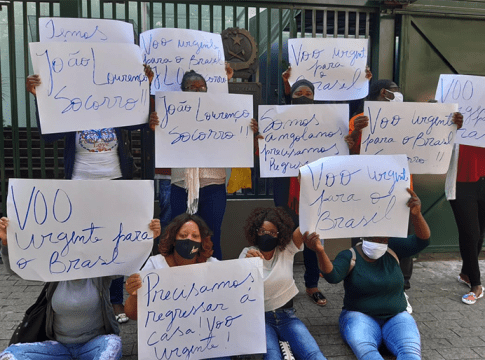 Temos
João Lourenço
Socorro
Voo urgente
para o Brasil
João Lourenço
Socorro!!
Voo Urgente
para o
Brasil
Somos
angolanos
precisamos
Regressar
Voo urgente
para o
Brasil!!
Voo
u
VOO
urgente para
o Brasil
Voo urgente
para o
Brasil
Precisamos
regressar à
casa! Voo
Urgente!